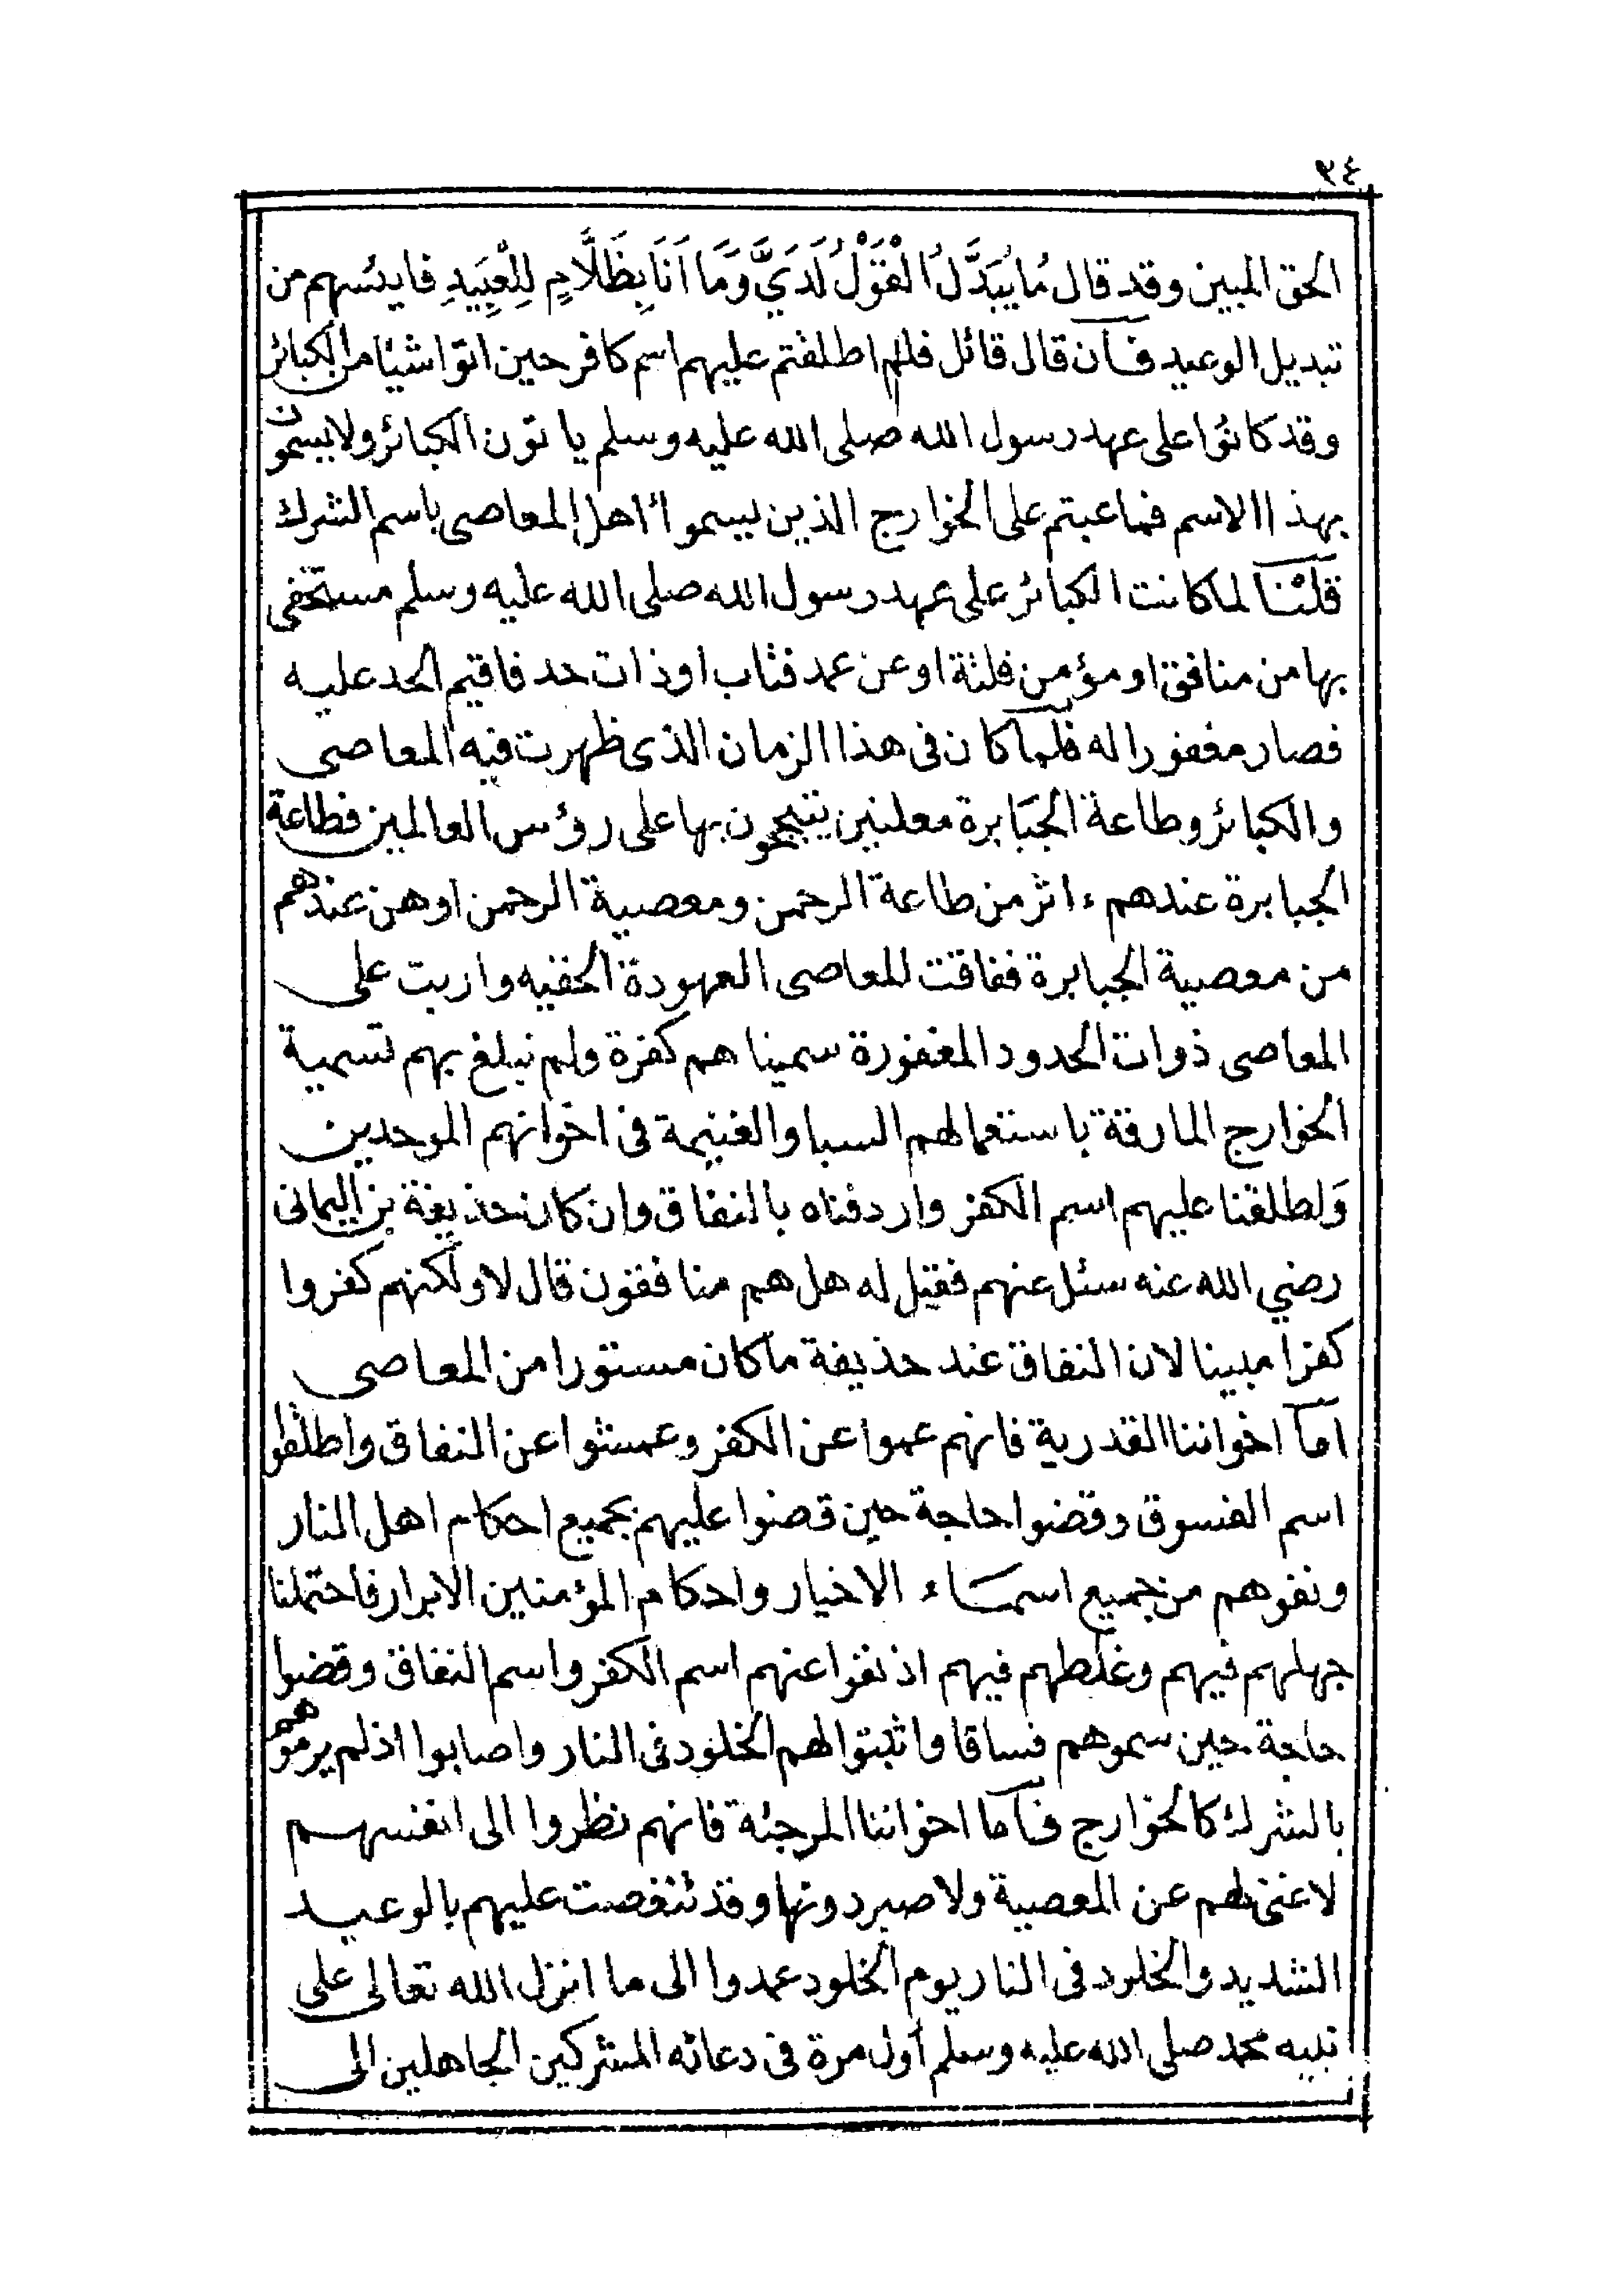 ٣٤
الحق المبين وقد قال مَا يُبَدَّلُ الْقَوْلُ لَدَيَّ وَمَا أَنَا بِظَلَّامٍ لِلْعَبِيدِ فايئسهم من
تبديل الوعيد فان قال قائل فلم اطلقتم عليهم اسم كافر حين اتوا شيئا من الكبائر
وقد كانوا على عهد رسول الله صلى الله عليه وسلم ياتون الكبائر ولا يسمون
بهذا الاسم فما عبتم على الخوارج الذين يسموا اهل المعاصى باسم الشرك
قلنا لما كانت الكبائر على عهد رسول الله صلى الله عليه وسلم مستخفى
بها من منافق او مؤمن فلتة او عن عمد فتاب او ذات حد فاقيم الحد عليه
فصار مغفورا له فلما كان فى هذا الزمان الذى ظهرت فيه المعاصى
والكبائر وطاعة الجَبَابرة معلنين يتبجحون بها على رؤس العالمين فطاعة
الجبابرة عندهم ءاثر من طاعة الرحمن ومعصية الرحمن اوهن عندهم
من معصية الجبابرة ففاقت للمعاصى العهودة الخفيه واربت على
المعاصى ذوات الحدود المغفورة سميناهم كفرة ولم نبلغ بهم تسمية
الخوارج المارقة باستعمالهم السبا والغنيمة فى اخوانهم الموحدين
وَاطلقنا عليهم اسم الكفر واردفناه بالنفاق وان كان حذيفة بن اليمانى
رضي الله عنه سئل عنهم فقيل له هل هم منافقون قال لا ولكنهم كفروا
كفرا مبينا لان النفاق عند حذيفة ما كان مستورا من المعاصى
اما اخواننا القدرية فانهم عموا عن الكفر وعمشوا عن النفاق واطلقوا
اسم الفسوق وقضوا حاجة حين قضوا عليهم بجميع احكام اهل النار
ونفوهم من جميع اسماء الاخيار واحكام المؤمنين الابرار فاحتملنا
جهلهم فيهم وغلطهم فيهم اذ نفوا عنهم اسم الكفر واسم النفاق وقضوا
حاجة حين سموهم فساقا واثبتوا لهم الخلود فى النار واصابوا اذ لم يرموهم
بالشرك كالخوارج فاما اخواننا المرجئة فانهم نظروا الى انفسهم
لا غنى لهم عن المعصية ولا صبر دونها وقد تنغصت عليهم بالوعيد
الشديد والخلود فى النار يوم الخلود عمدوا الى ما انزل الله تعالى على
نبيه محمد صلى الله عليه وسلم أول مرة فى دعائه المشركين الجاهلين الى